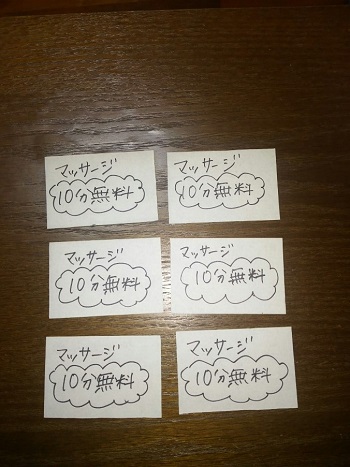 マッサージ
10分無料
マッサージ
10分無料
マッサージ
10分無料
マッサージ
10分無料
マッサージ
10分無料
マッサージ
10分無料